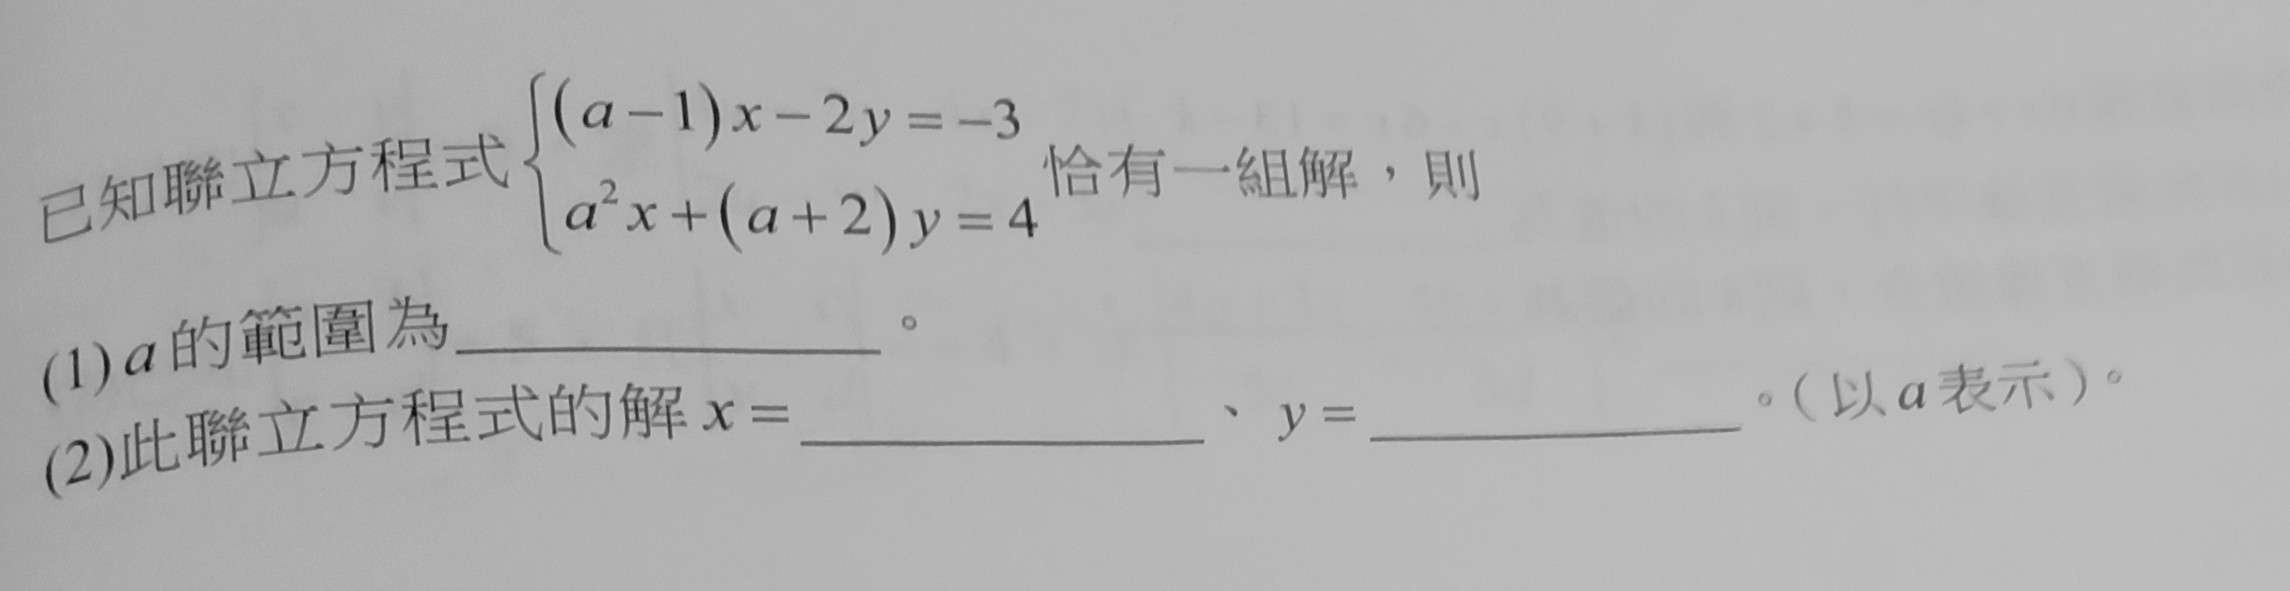 已知聯立方程式{(a−1)x−2y=−3
a²x+(a+2)y=4 恰有一組解，則
(1)a的範圍為__________。
(2)此聯立方程式的解x=__________、y=__________。(以a表示)。